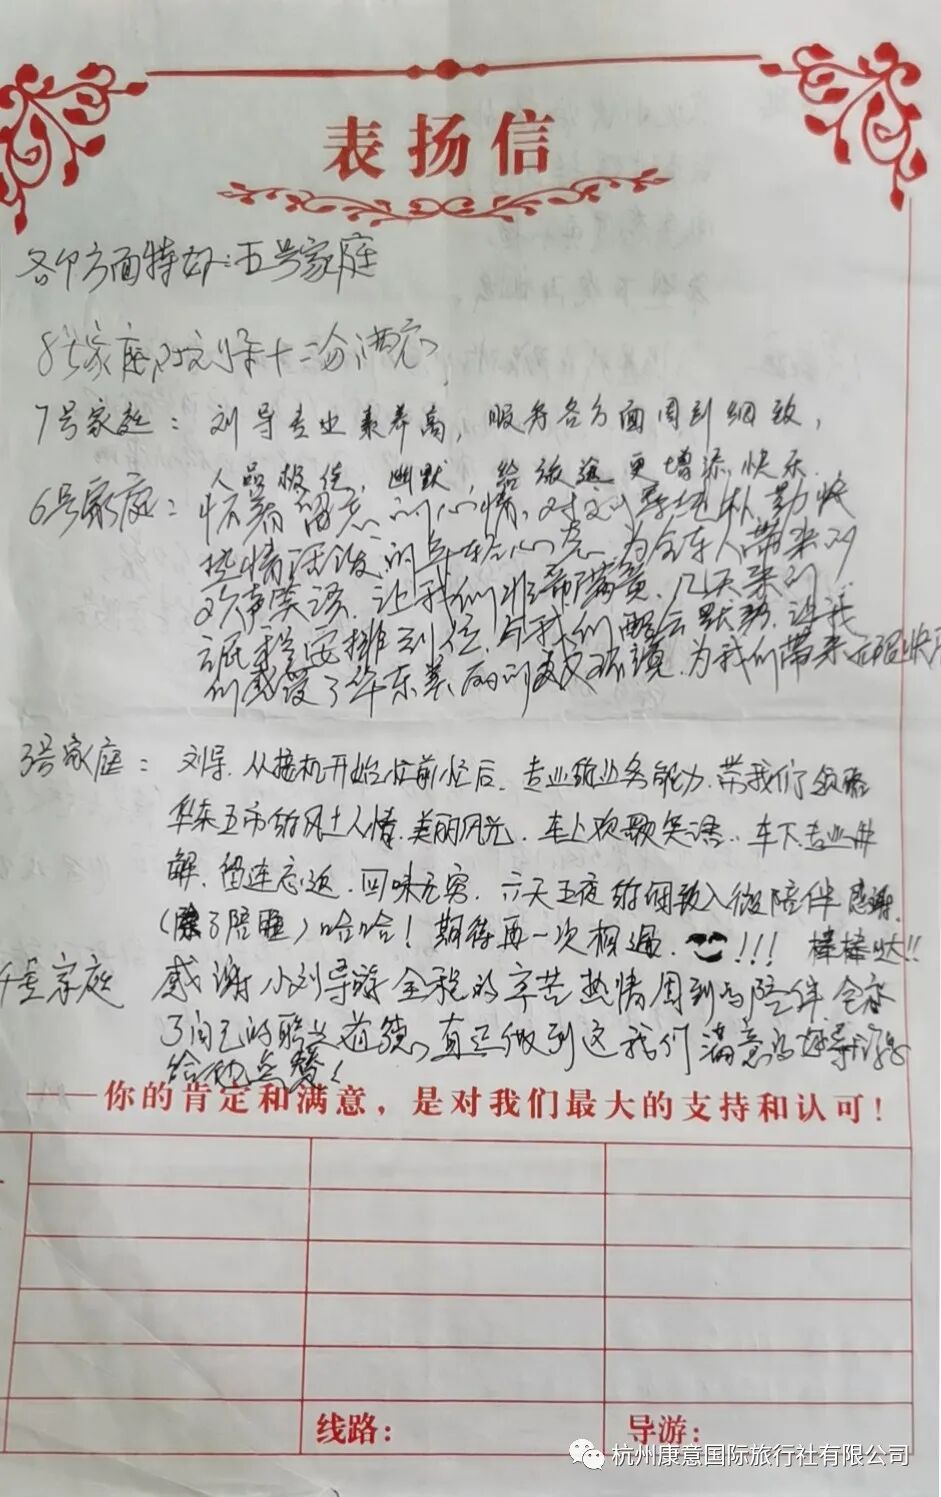 表扬信
各个方面特好:五号家庭
8号家庭对刘导十二分满意
7号家庭：刘导专业素养高，服务各方面周到细致，
人品极佳，幽默，给旅途更增添快乐.
6号家庭：怀着留恋的心情，对刘导纯朴勤快
热情 的 为全车人带来了
欢声笑语.让我们非常满意.几天来的
行程安排到位.与我们配合默契.让我
们感受了华东美丽的 环境.为我们带来 快乐
3号家庭：刘导.从接机开始忙前忙后.专业的业务能力.带我们领略
华东五市的风土人情.美丽风光.车上欢歌笑语..车下专业讲
解.留连忘返.回味无穷.六天五夜的细致入微陪伴感谢.
(除了陪睡)哈哈!期待再一次相遇.!!!棒棒哒!!
4号家庭 感谢小刘导游全程的辛苦热情周到的陪伴
了自己的职业道德，真正做到这我们满意的好导游
给他点赞!
——你的肯定和满意，是对我们最大的支持和认可!
线路: 导游:
杭州康意国际旅行社有限公司